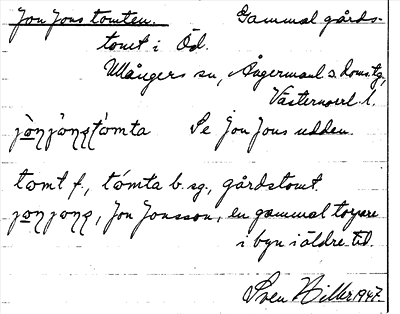 Jon Jons tomten. Gammal gårds-
tomt i Öd.
Ullångers sn, Ångermanl. s. domstg,
Västernorrl. l.
jòn jòns tómta Se Jon Jons udden.
tomt f., tómta b. sg., gårdstomt.
jon jons, Jon Jonsson, en gammal torpare
i byn i äldre tid.
Sven Hiller 1947.